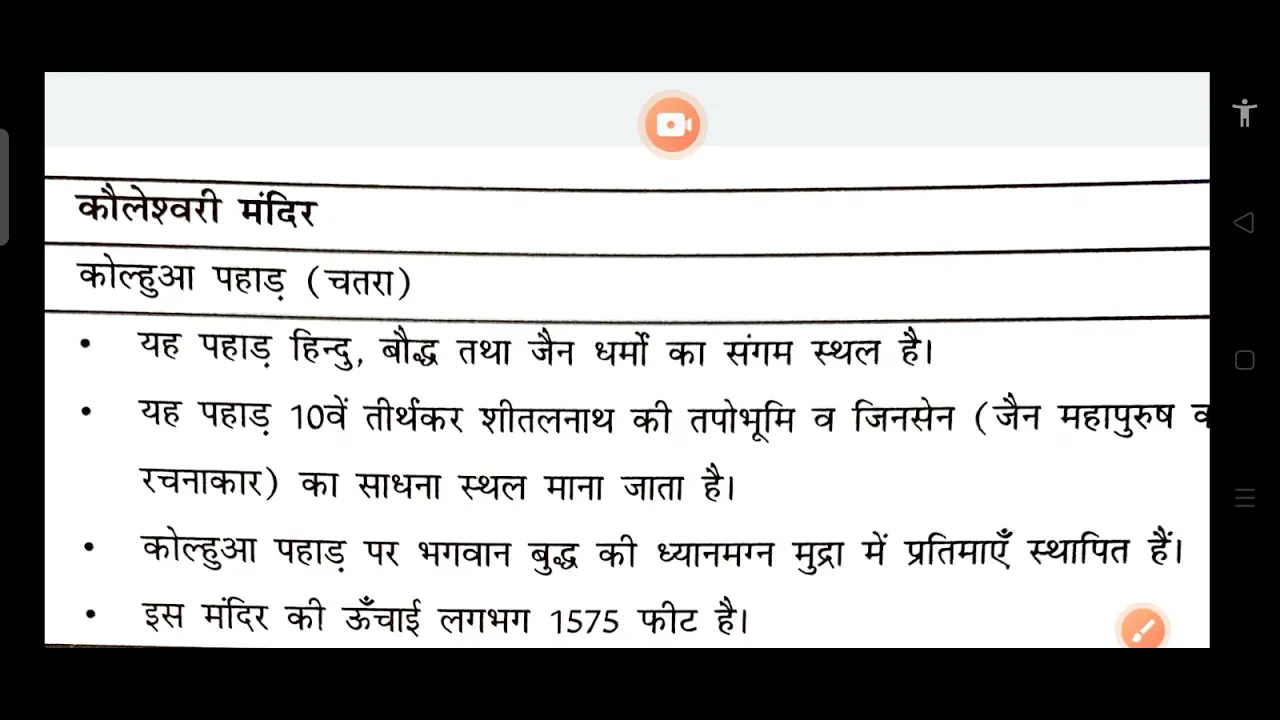 कौलेश्वरी मंदिर
कोल्हुआ पहाड़ (चतरा)
• यह पहाड़ हिन्दु, बौद्ध तथा जैन धर्मों का संगम स्थल है।
• यह पहाड़ 10वें तीर्थकर शीतलनाथ की तपोभूमि व जिनसेन (जैन महापुरुष
रचनाकार) का साधना स्थल माना जाता है।
• कोल्हुआ पहाड़ पर भगवान बुद्ध की ध्यानमग्न मुद्रा में प्रतिमाएँ स्थापित हैं।
• इस मंदिर की ऊँचाई लगभग 1575 फीट है।